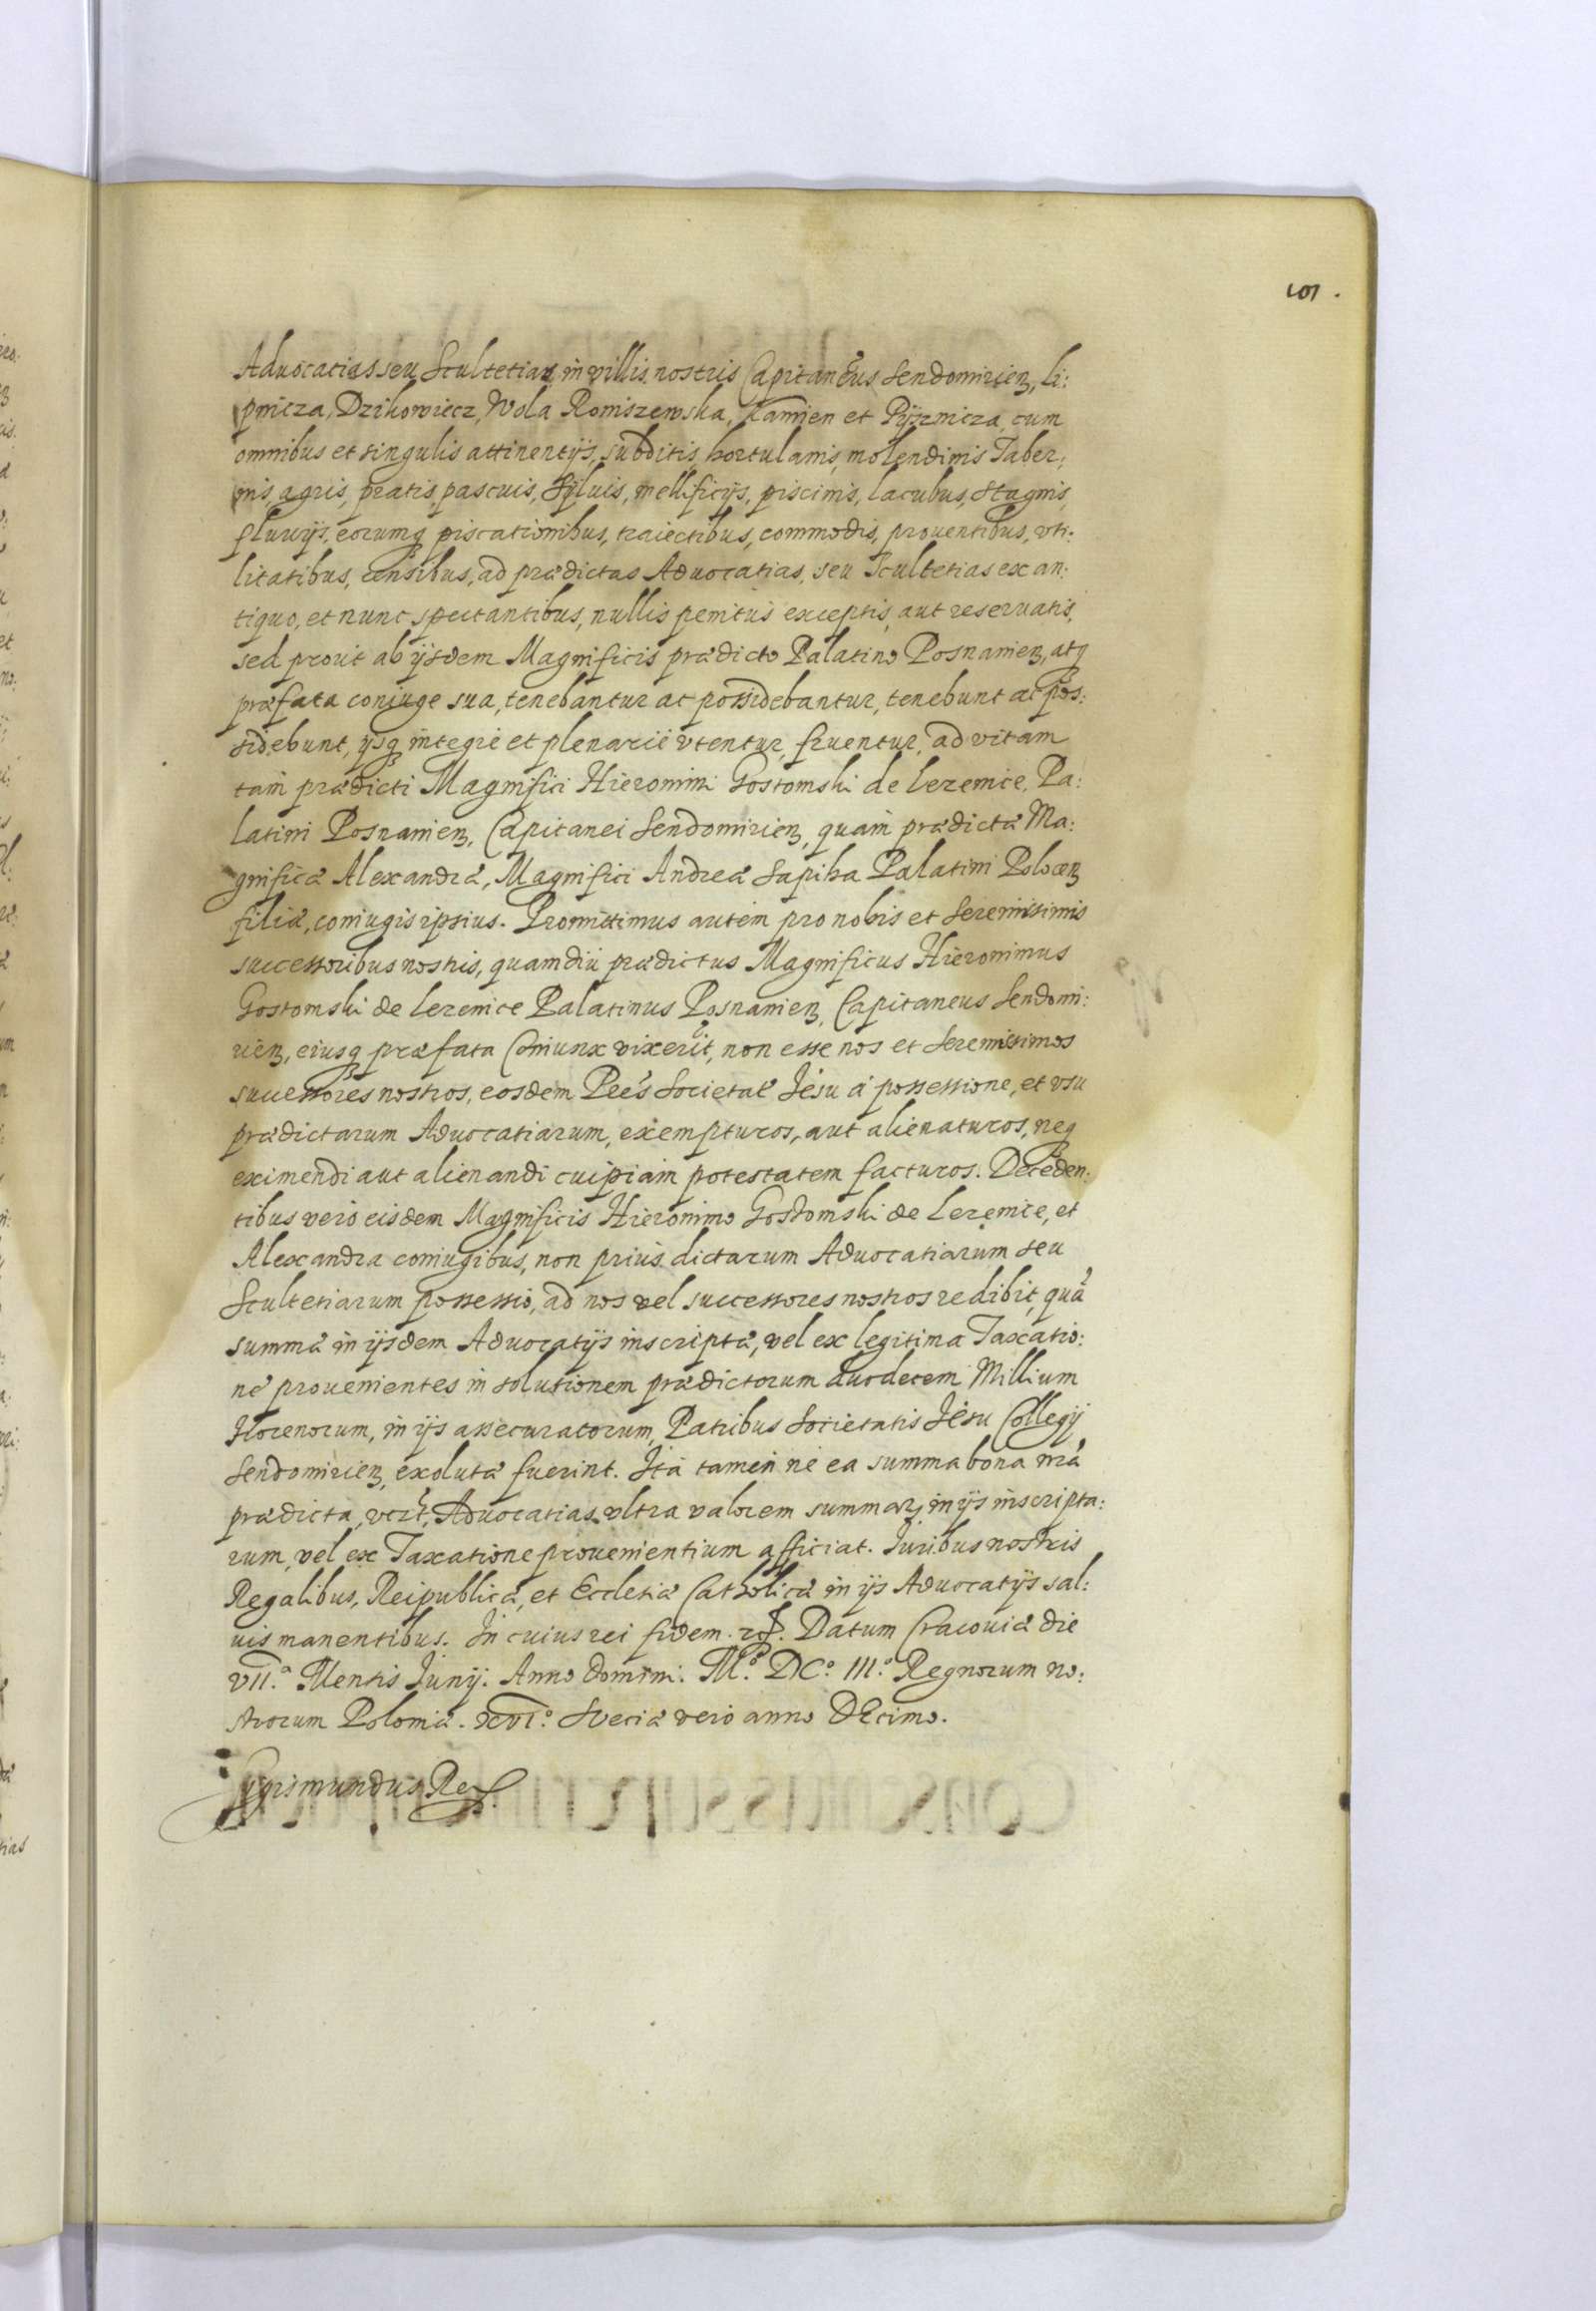 101.
Aduocatias seu Scultetias in villis nostris Capitaneatus Sendomirien, Li:
pnicza, Dzikowiecz, Wola Roniszewska, Kamien et Pijznicza, cum
omnibus et singulis attinentijs, subditis, hortulanis, molendinis Taber:
nis, agris, pratis, pascuis, Syluis, mellificijs, piscinis, lacubus, stagnis,
fluuijs, eorumq piscationibus, traiectibus, commodis, prouentibus, vti:
litatibus, censibus, ad prædictas Aduocatias, seu Scultetias ex an:
tiquo, et nunc spectantibus, nullis penitus exceptis, aut reseruatis,
sed prout ab ijsdem Magnificis prædicto Palatino Posnanien, atq
præfata coniuge sua, tenebantur ac possidebantur, tenebunt ac pos:
sidebunt, ijsq integre et plenarie vtentur, fruentur, ad vitam
tam prædicti Magnifici Hieronimi Gostomski de Lezenice, Pa:
latini Posnanien, Capitanei Sendomirien, quam prædictæ Ma:
gnificæ Alexandræ, Magnifici Andreæ Sapiha Palatini Polocen
filiæ, coniugis ipsius. Promittimus autem pro nobis et Serenissimis
successoribus nostris, quamdiu prædictus Magnificus Hieronimus
Gostomski de Lezenice Palatinus Posnanien, Capitaneus Sendomi:
rien, eiusq præfata Coniunx vixerit, non esse nos et Serenissimos
successores nostros, eosdem Pres Societat Jesu à possessione, et vsu
prædictarum Aduocatiarum, exempturos, aut alienaturos, neq
eximendi aut alienandi cuipiam potestatem facturos. Deceden:
tibus vero eisdem Magnificis Hieronimo Gostomski de Lezenice, et
Alexandra coniugibus, non prius dictarum Aduocatiarum seu
Scultetiarum possessio, ad nos vel successores nostros redibit, quã
summæ in ijsdem Aduocatijs inscriptæ, vel ex legitima Taxatio:
ne prouenientes in solutionem prædictorum duodecem Millium
florenorum, in ijs assecuratorum, Patribus Societatis Jesu Collegij
Sendomirien, exolutæ fuerint. Ita tamen ne ea summa bona nra
prædicta, vczt, Aduocatias vltra valorem summar, in ijs inscripta:
rum, vel ex Taxatione prouenientium afficiat. Iuribus nostris
Regalibus, Reipublicæ, et Ecclesiæ Catholicæ in ijs Aduocatijs sal:
uis manentibus. In cuius rei fidem. Datum Cracouiæ die
VII.a Mensis Junij. Anno Domini. M.o DC.o III.o Regnorum no:
strorum Poloniæ. XVI.o Sveciæ vero anno DEcimo.
Sygismundus Rex.